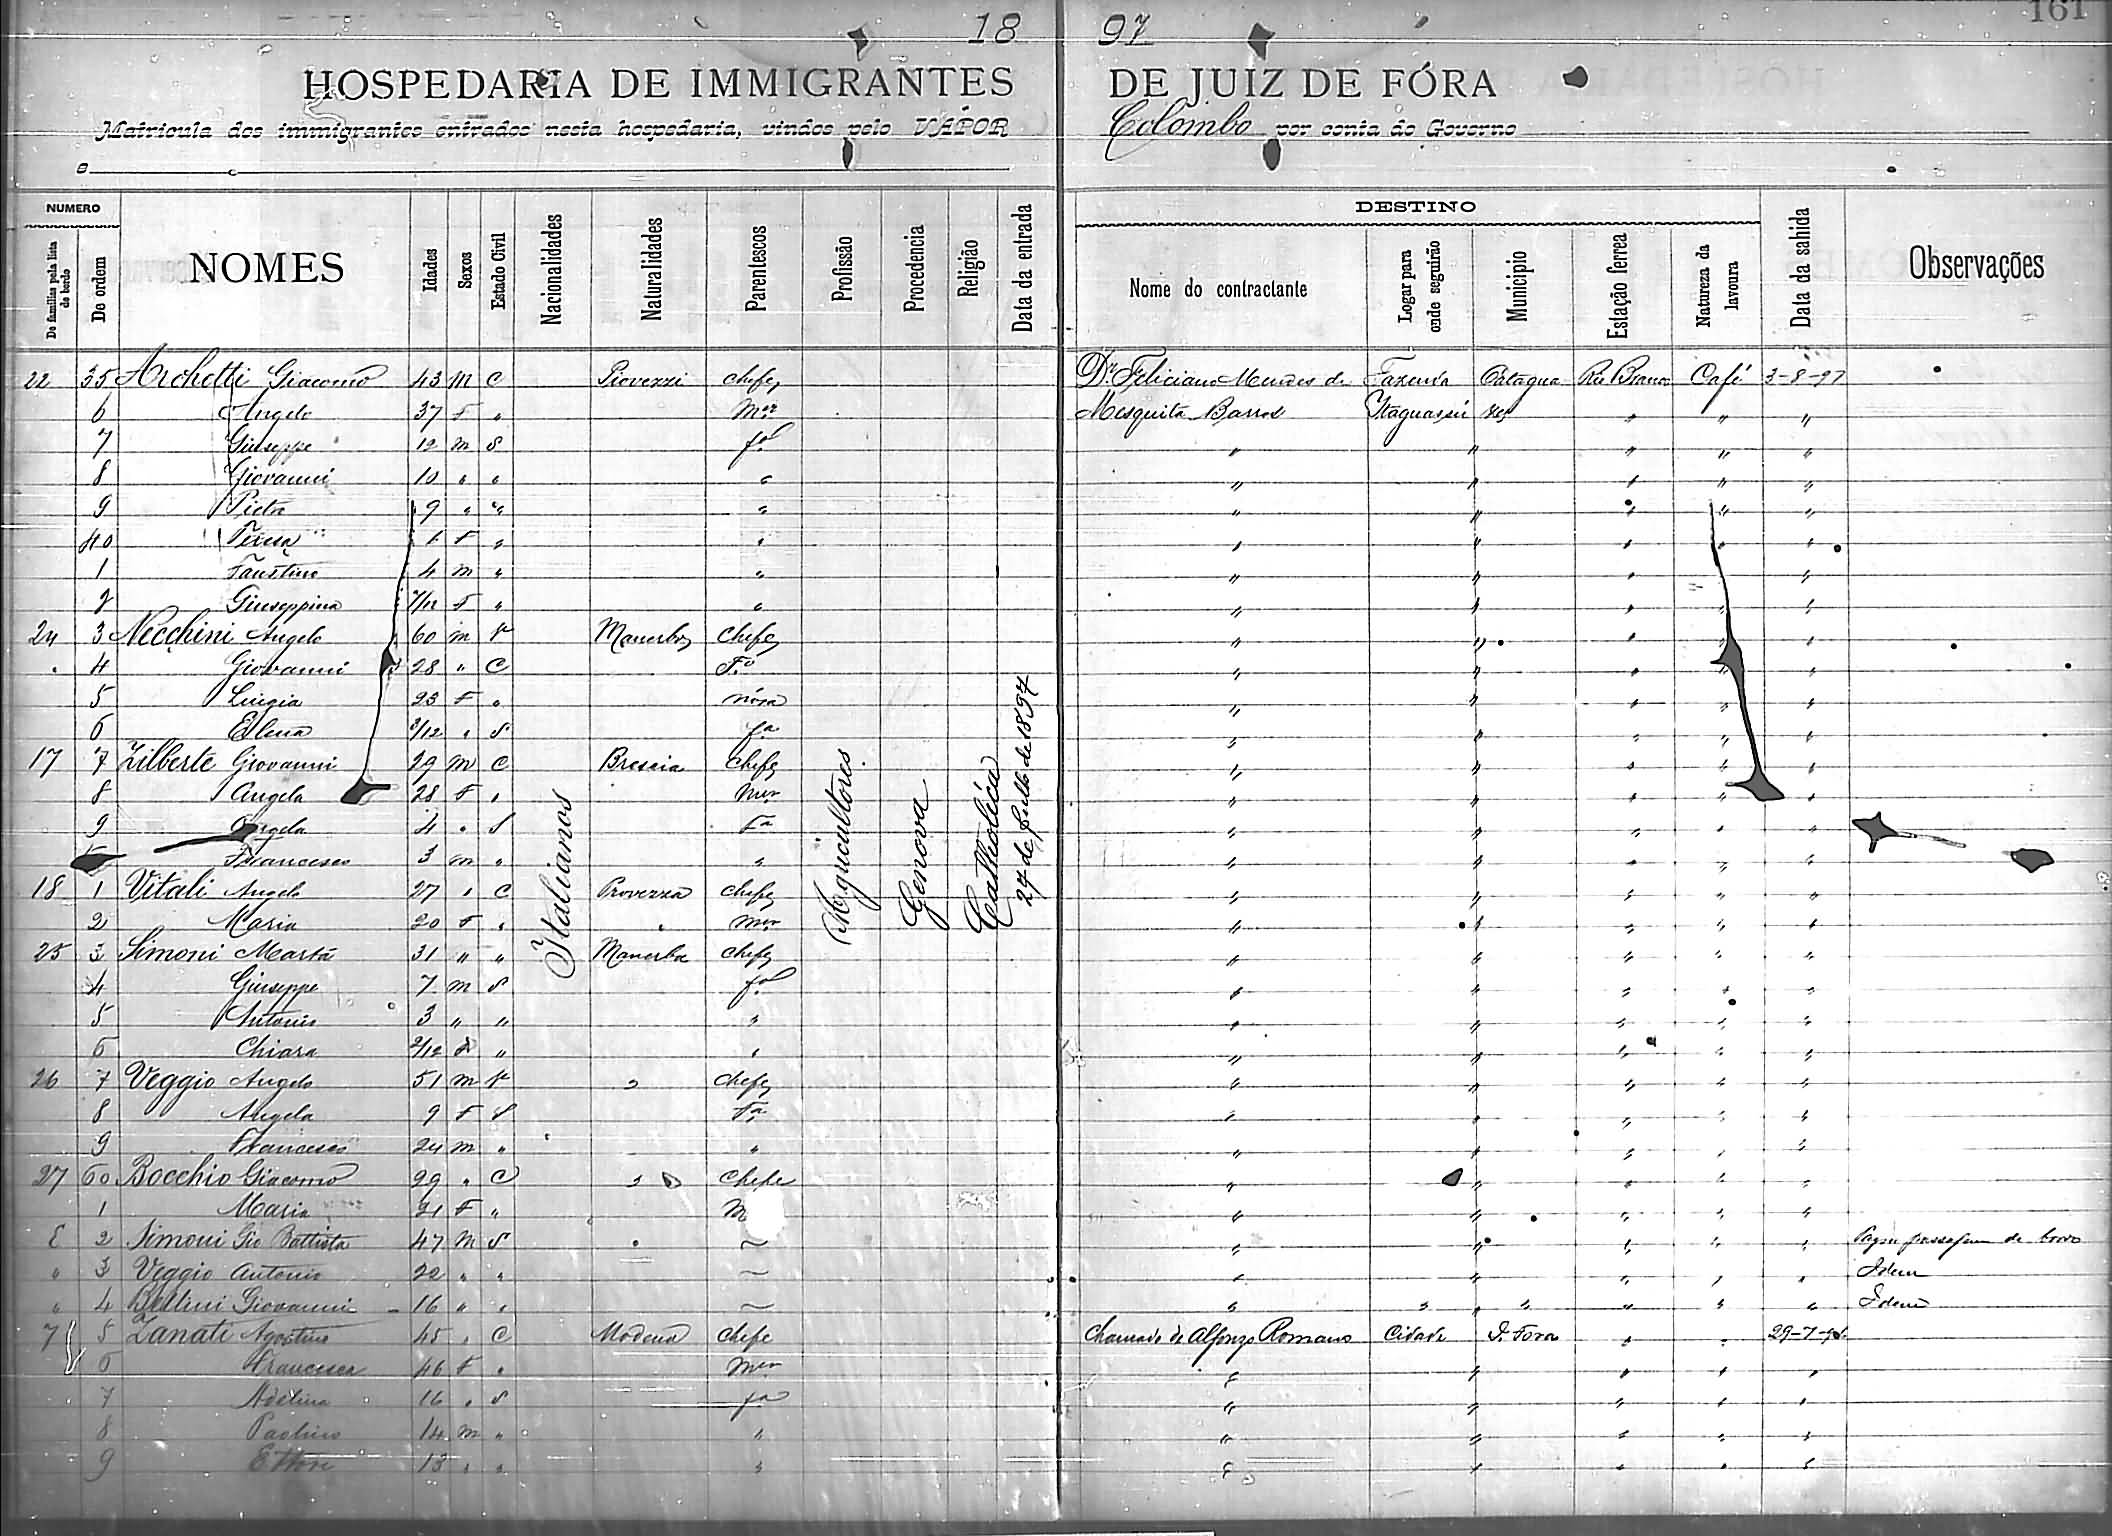 18 97
161
HOSPEDARIA DE IMMIGRANTES DE JUIZ DE FÓRA
Matricula dos immigrantes entrados nesta hospedaria, vindos pelo VAPOR Colombo por conta do Governo
e
NUMERO
De familias pela lista de bordo
De ordem
NOMES
Idades
Sexos
Estado Civil
Nacionalidades
Naturalidades
Parentescos
Profissão
Procedencia
Religião
Data da entrada
DESTINO
Nome do contractante
Logar para onde seguirão
Municipio
Estação ferrea
Natureza da lavoura
Data da sahida
Observações
22 35 Archetti Giacomo 43 M C Piovezzi Chefe Dr. Feliciano Mendes de Fazenda Catagua Rio Branco Café 3-8-97
6 Angelo 37 F " Mer Mesquita Barros Itaguassú zes " " "
7 Giuseppe 12 m S fo " " " " "
8 Giovanni 10 " " " " " " " "
9 Pietro 9 " " " " " " " "
40 Teresa F " " " " " " "
1 Faustino 4 m " " " " " " "
2 Giuseppina 7/12 F " " " " " " "
24 3 Necchini Angelo 60 m V Manerba Chefe " " " " "
4 Giovanni 28 " C Fo " " " " "
5 Luigia 23 F " nóra " " " " "
6 Elena 3/12 " S fa " " " " "
17 7 Zilberte Giovanni 29 M C Brescia Chefe " " " " "
8 Angela 28 F " Mer " " " " "
9 Angela 4 " S Fa " " " " "
Francesco 3 m " " " " " " "
18 1 Vitali Angelo 27 " C Provezza Chefe " " " " "
2 Maria 20 F " " Mer " " " " "
25 3 Simoni Marta 31 " " Manerba Chefe " " " " "
4 Giuseppe 7 m S fo " " " " "
5 Antonio 3 " " " " " " " "
6 Chiara 2/12 F " " " " " " "
26 7 Veggio Angelo 51 m V " Chefe " " " " "
8 Angela 9 F S Fa " " " " "
9 Francesco 24 m " " " " " " "
27 60 Bocchio Giacomo 29 " C " Chefe " " " " "
1 Maria 21 F " M " " " " "
E 2 Simoni Gio Battista 47 M S " ~ " " " " " Pagou passagem de bordo
" 3 Veggio Antonio 22 " " ~ " " " " " Idem
" 4 Bellini Giovanni - 16 " " ~ " " " " " " Idem
7 5 Zanati Agostino 45 " C Modena Chefe Chamado de Alfonzo Romano Cidade J. Fora " " 29-7-97
6 Francesca 46 F " Mer " " " " "
7 Adelina 16 " S fa " " " " "
8 Paolino 14 m " " " " " " "
9 Ettore 13 " " " " " " " "
Italianos
Agricultores
Genova
Catholica
27 de Julho de 1897